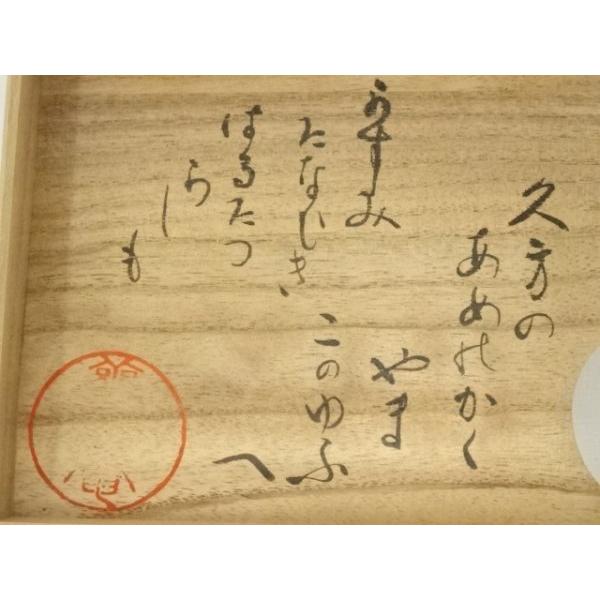 久方の
あめのかく
やま
このゆふ
へ
かすみ
たなひき
はるたつ
らし
も